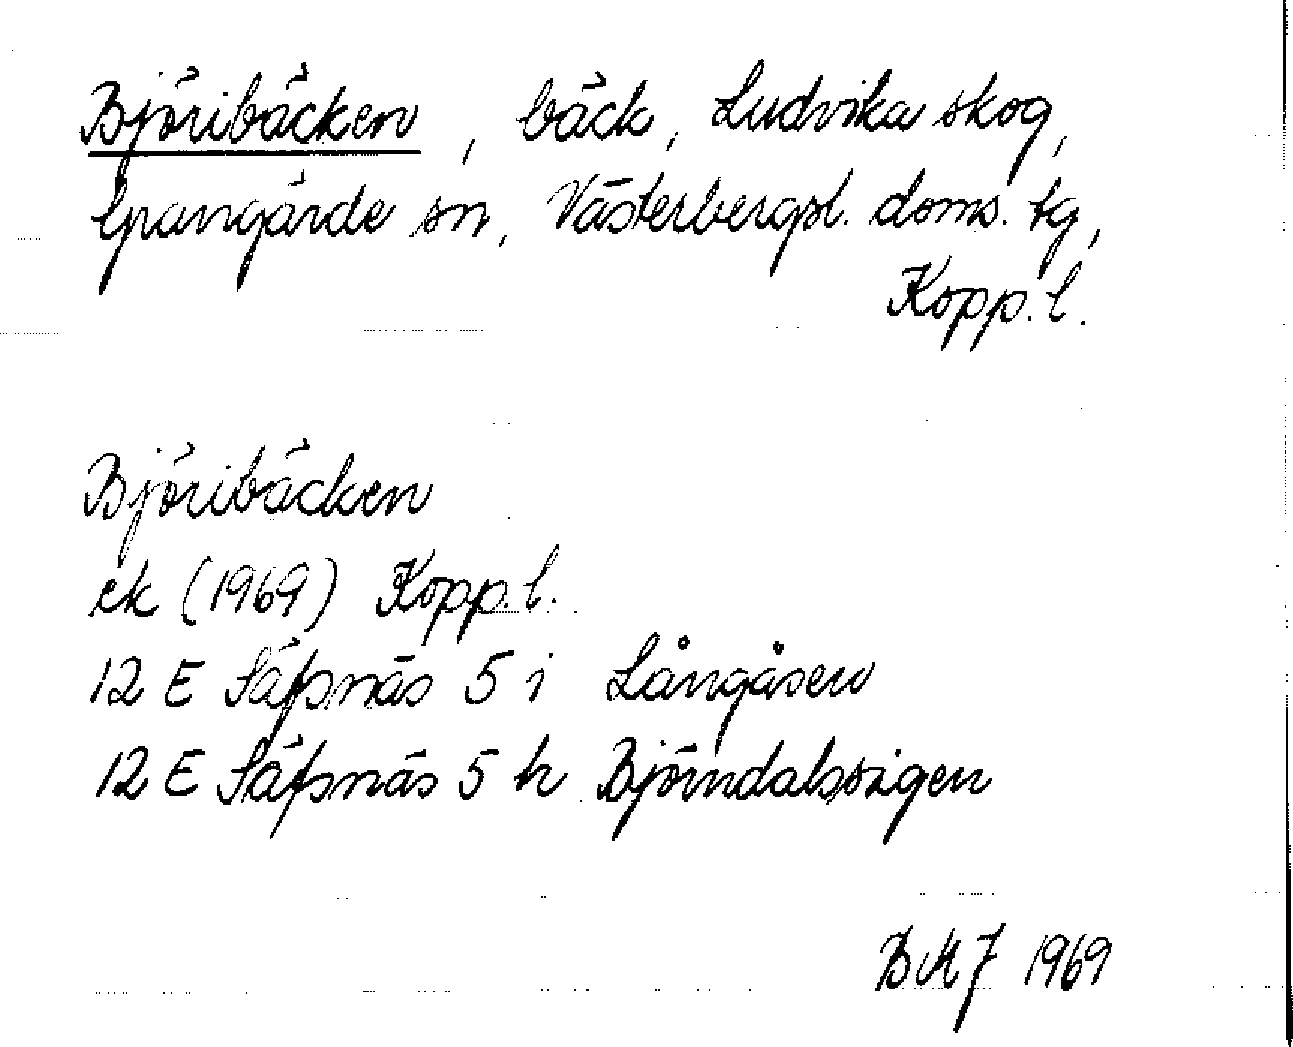 Björibäcken, bäck, Ludvika skog,
Grangärde sn, Västerbergsl. doms. tg,
Kopp. l.
Björibäcken
ek (1969) Kopp. l.
12 E Säfsnäs 5 i Långåsen
12 E Säfsnäs 5 h Björndalsstigen
BMJ 1969